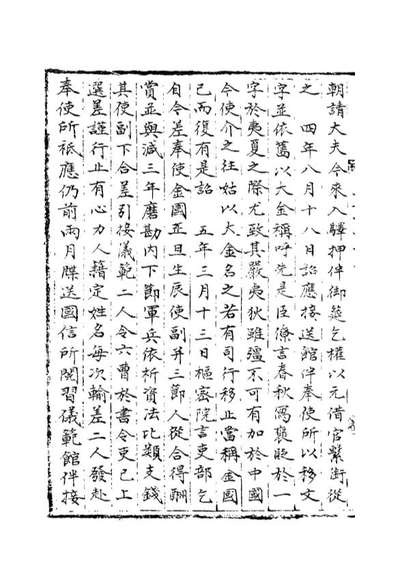 朝請大夫今來入驛押伴御筵乞權以元借官繫銜從
之 四年八月十八日詔應接送館伴奉使所以移文
字並依舊以大金稱呼先是臣僚言春秋寓褒貶於一
字於夷夏之際尤致其嚴夷狄雖彊不可有加於中國
今使介之往姑以大金名之若有司行移止當稱金國
已而復有是詔 五年三月十三日樞密院言吏部乞
自今差奉使金國正旦生辰使副并三節人從合得酬
賞並與減三年磨勘內下節軍兵依折資法比類支錢
其使副下合差引接儀範二人令六曹於書令史已上
選差謹行止有心力人籍定姓名每次輪差二人發赴
奉使所祗應仍前兩月牒送國信所閱習儀範館伴接